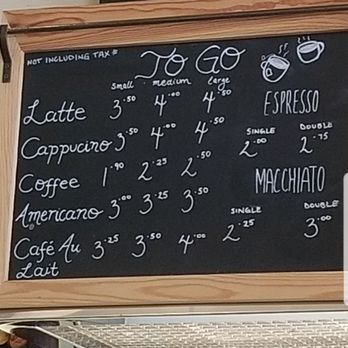 NOT INCLUDING TAX*
TO GO
small medium large
Latte 3.50 4.00 4.50
Cappucino 3.50 4.00 4.50
Coffee 1.90 2.25 2.50
Americano 3.00 3.25 3.50
Café Au Lait 3.25 3.50 4.00
ESPRESSO
SINGLE DOUBLE
2.00 2.75
MACCHIATO
SINGLE DOUBLE
2.25 3.00